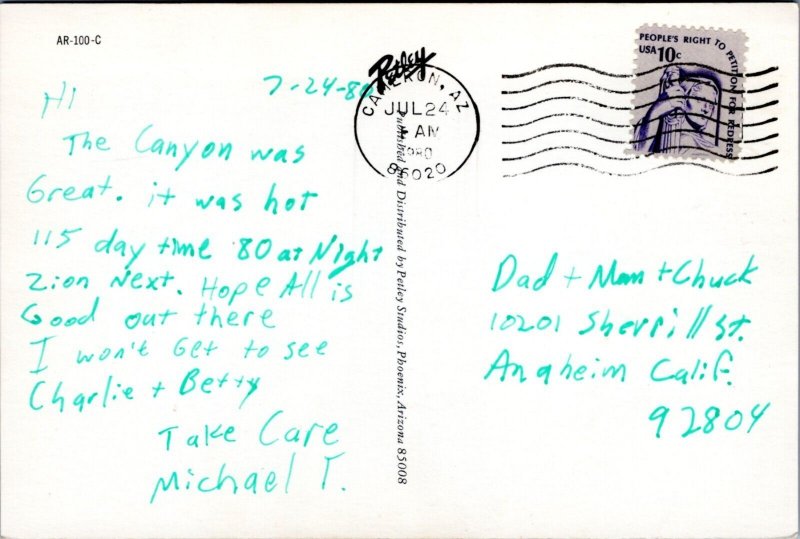 AR-100-C
7-24-80
Hi
The Canyon was
Great. it was hot
115 day time 80 at Night
Zion Next. Hope All is
Good out there
I won't Get to see
Charlie + Betty
Take Care
Michael T.
Petley
Published and Distributed by Petley Studios, Phoenix, Arizona 85008
CAMERON, AZ
JUL 24
AM
1980
86020
PEOPLE'S RIGHT TO PETITION FOR REDRESS
USA 10c
Dad + Mom + Chuck
10201 Sherrill St.
Anaheim Calif.
92804